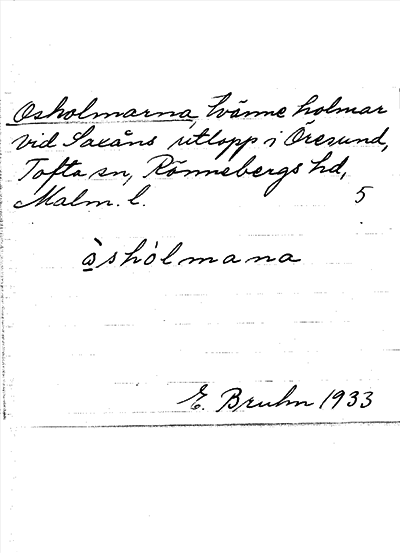 Osholmarna, tvänne holmar
vid Saxåns utlopp i Öresund,
Tofta sn, Rönnebergs hd,
Malm. l. 5
åshòlmana
E. Bruhn 1933